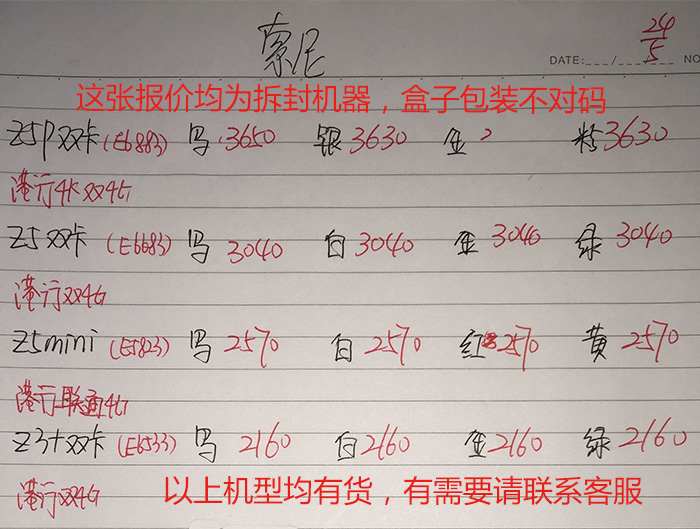 索尼
24/5
DATE: ___/___/___ NO
这张报价均为拆封机器，盒子包装不对码
Z5P双卡(E6883) 写3650 银3630 金 粉3630
港行4K双4G
Z5双卡(E6683) 写3040 白3040 金3040 绿3040
港行双4G
Z5mini(E5823) 写2570 白2570 红2570 黄2570
港行联通4G
Z3+双卡(E6533) 写2160 白2160 金2160 绿2160
港行双4G
以上机型均有货，有需要请联系客服